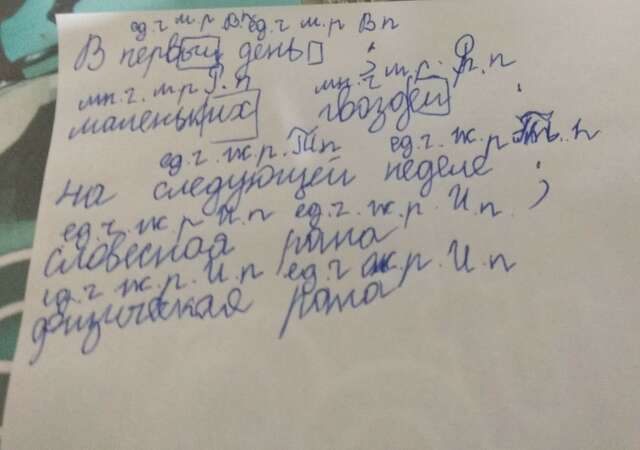 ед.ч м.р Вп ед.ч м.р Вп
В первый день
мн.ч. м.р Р.п мн.ч м.р. Р.п
маленьких гвоздей
ед.ч. ж.р. Пп ед.ч. ж.р П. п
на следующей неделе ;
ед.ч ж.р И.п ед.ч. ж.р. И.п
словесная рана
ед.ч ж.р. И.п ед.ч ж.р. И.п
физическая рана